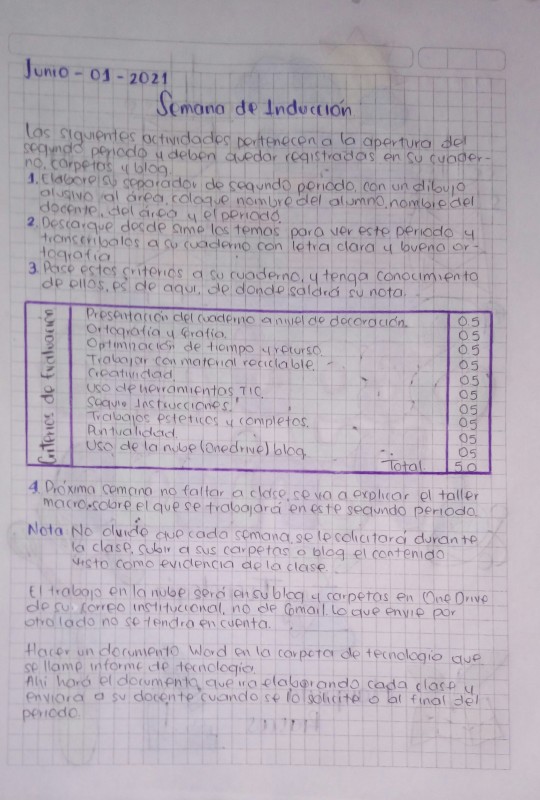 Junio - 01 - 2021
Semana de Inducción
Las siguientes actividades pertenecen a la apertura del
segundo periodo y deben quedar registradas en su cuader-
no, carpetas y blog.
1. Elabore su separador de segundo periodo, con un dibujo
alusivo al área, coloque nombre del alumno, nombre del
docente, del área y el periodo.
2. Descargue desde sime los temas para ver este periodo y
transcribalos a su cuaderno con letra clara y buena or-
tografía
3. Pase estos criterios a su cuaderno, y tenga conocimiento
de ellos, es de aqui, de donde saldrá su nota.
Criterios de Evaluación
Presentación del cuaderno a nivel de decoración. 05
Ortografía y Grafía. 05
Optiminación de tiempo y recurso. 05
Trabajar con material reciclable. 05
Creatividad. 05
Uso de herramientas TIC. 05
Seguir Instrucciones. 05
Trabajos esteticos y completos. 05
Puntualidad. 05
Uso de la nube (onedrive) blog 05
Total 50
4. Próxima semana no faltar a clase, se va a explicar el taller
macro, sobre el que se trabajará en este segundo periodo
Nota No olvide que cada semana, se le solicitará durante
la clase, subir a sus carpetas o blog el contenido
visto como evidencia de la clase.
El trabajo en la nube será en su blog y carpetas en One Drive
de su correo institucional, no de Gmail. Lo que envie por
otro lado no se tendra en cuenta.
Hacer un documento Word en la carpeta de tecnologia que
se llame informe de tecnologia.
Ahi hará el documento que va elaborando cada clase y
enviara a su docente cuando se lo solicite o al final del
periodo.